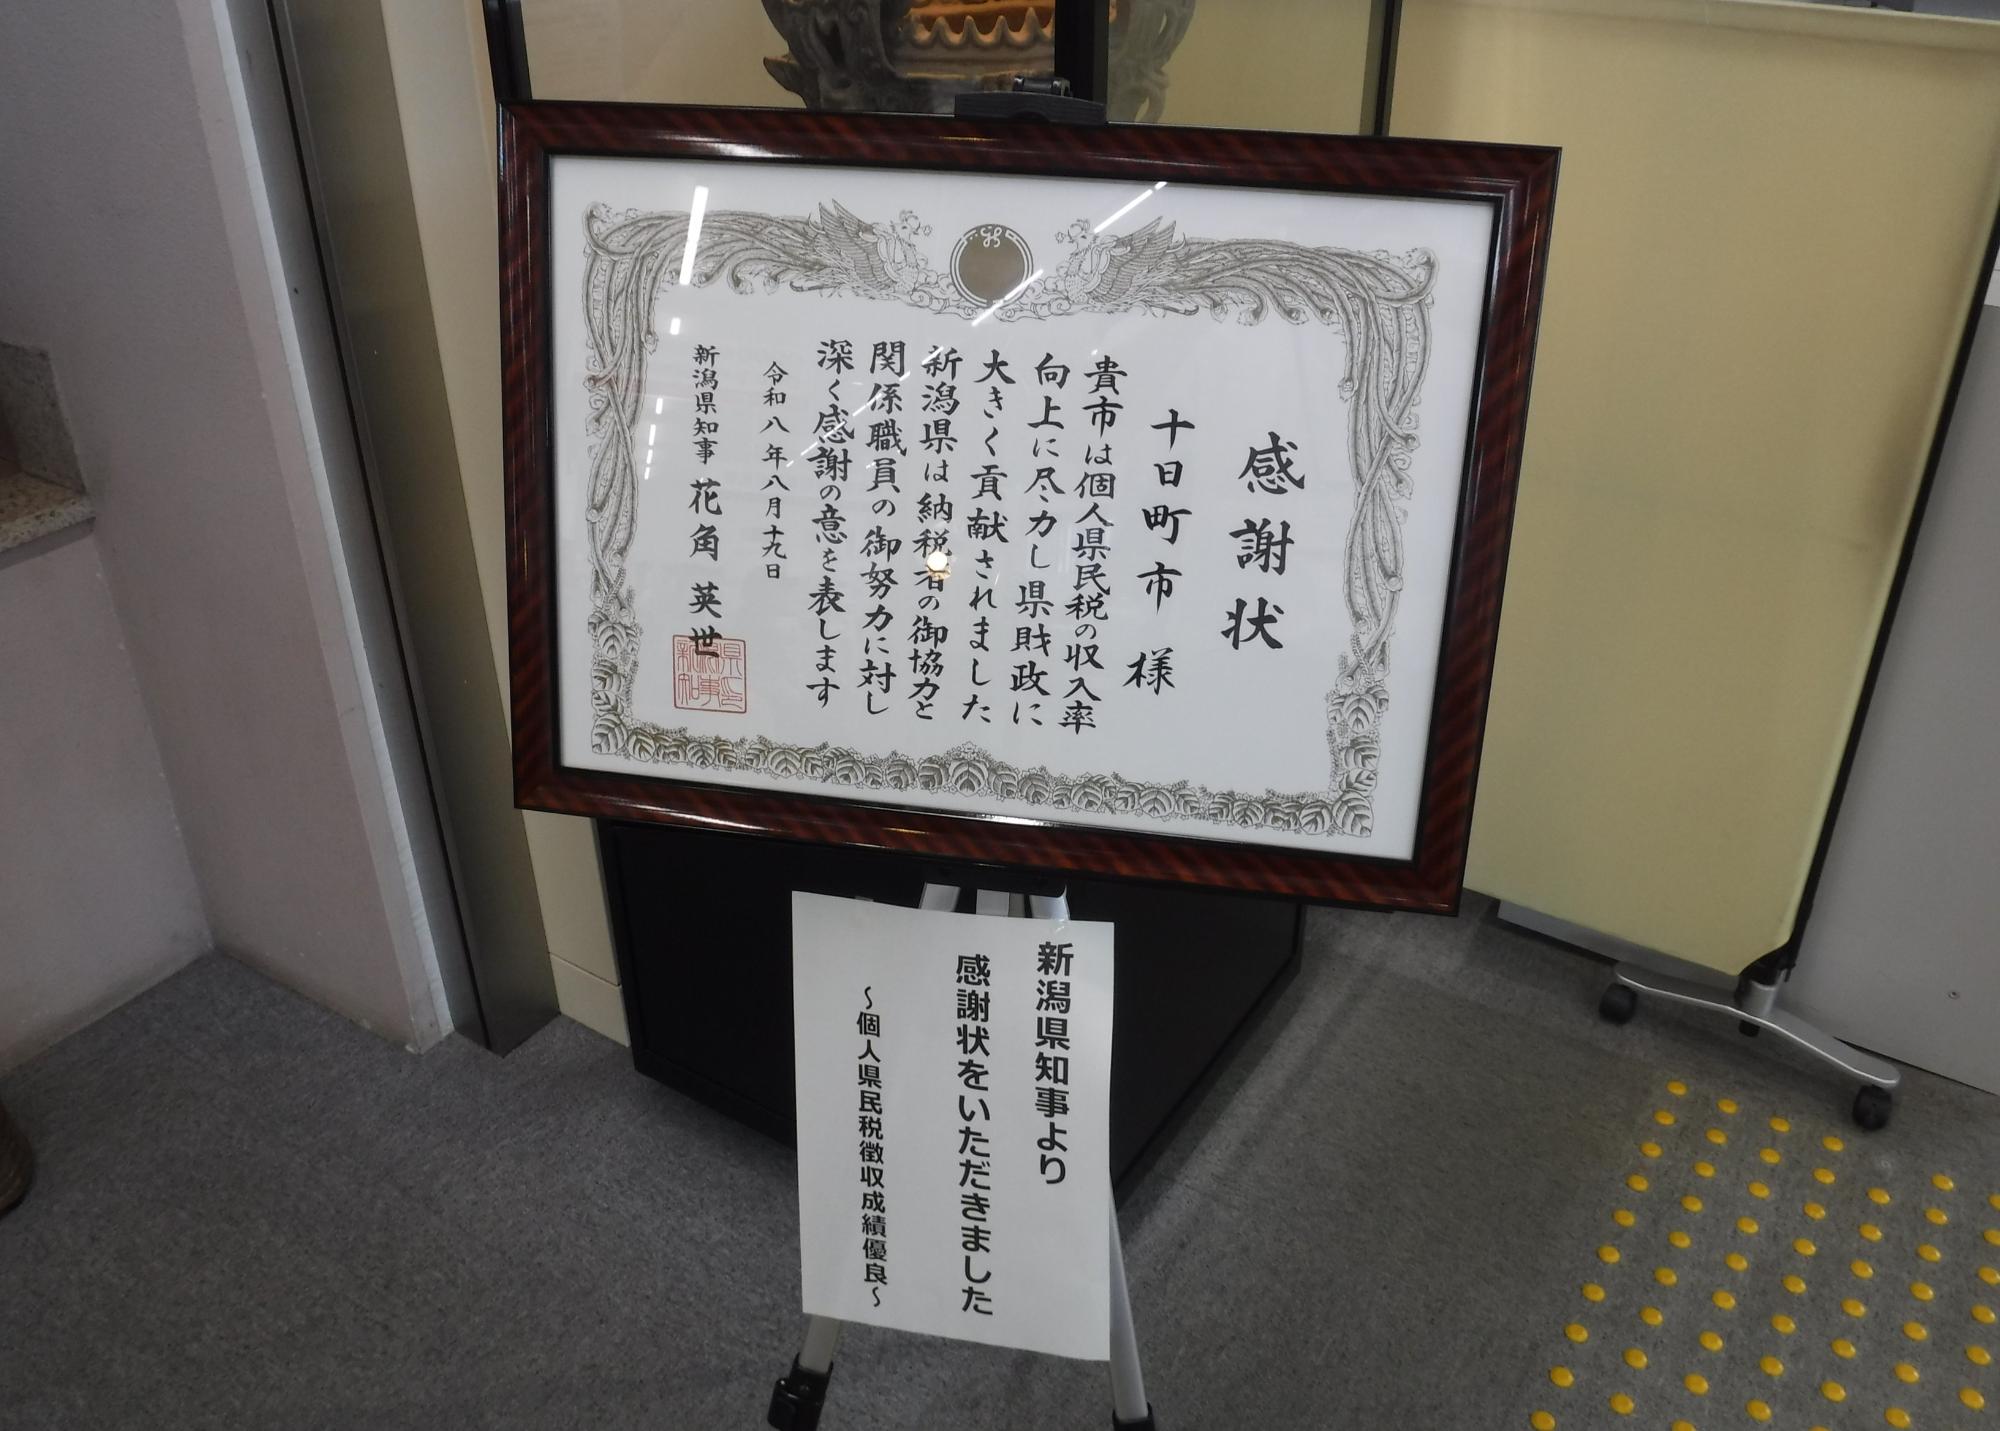 感謝状
十日町市 様
貴市は個人県民税の収入率
向上に尽力し県財政に
大きく貢献されました
新潟県は納税者の御協力と
関係職員の御努力に対し
深く感謝の意を表します
令和八年八月十九日
新潟県知事 花角 英世
新潟県知事より
感謝状をいただきました
～個人県民税徴収成績優良～